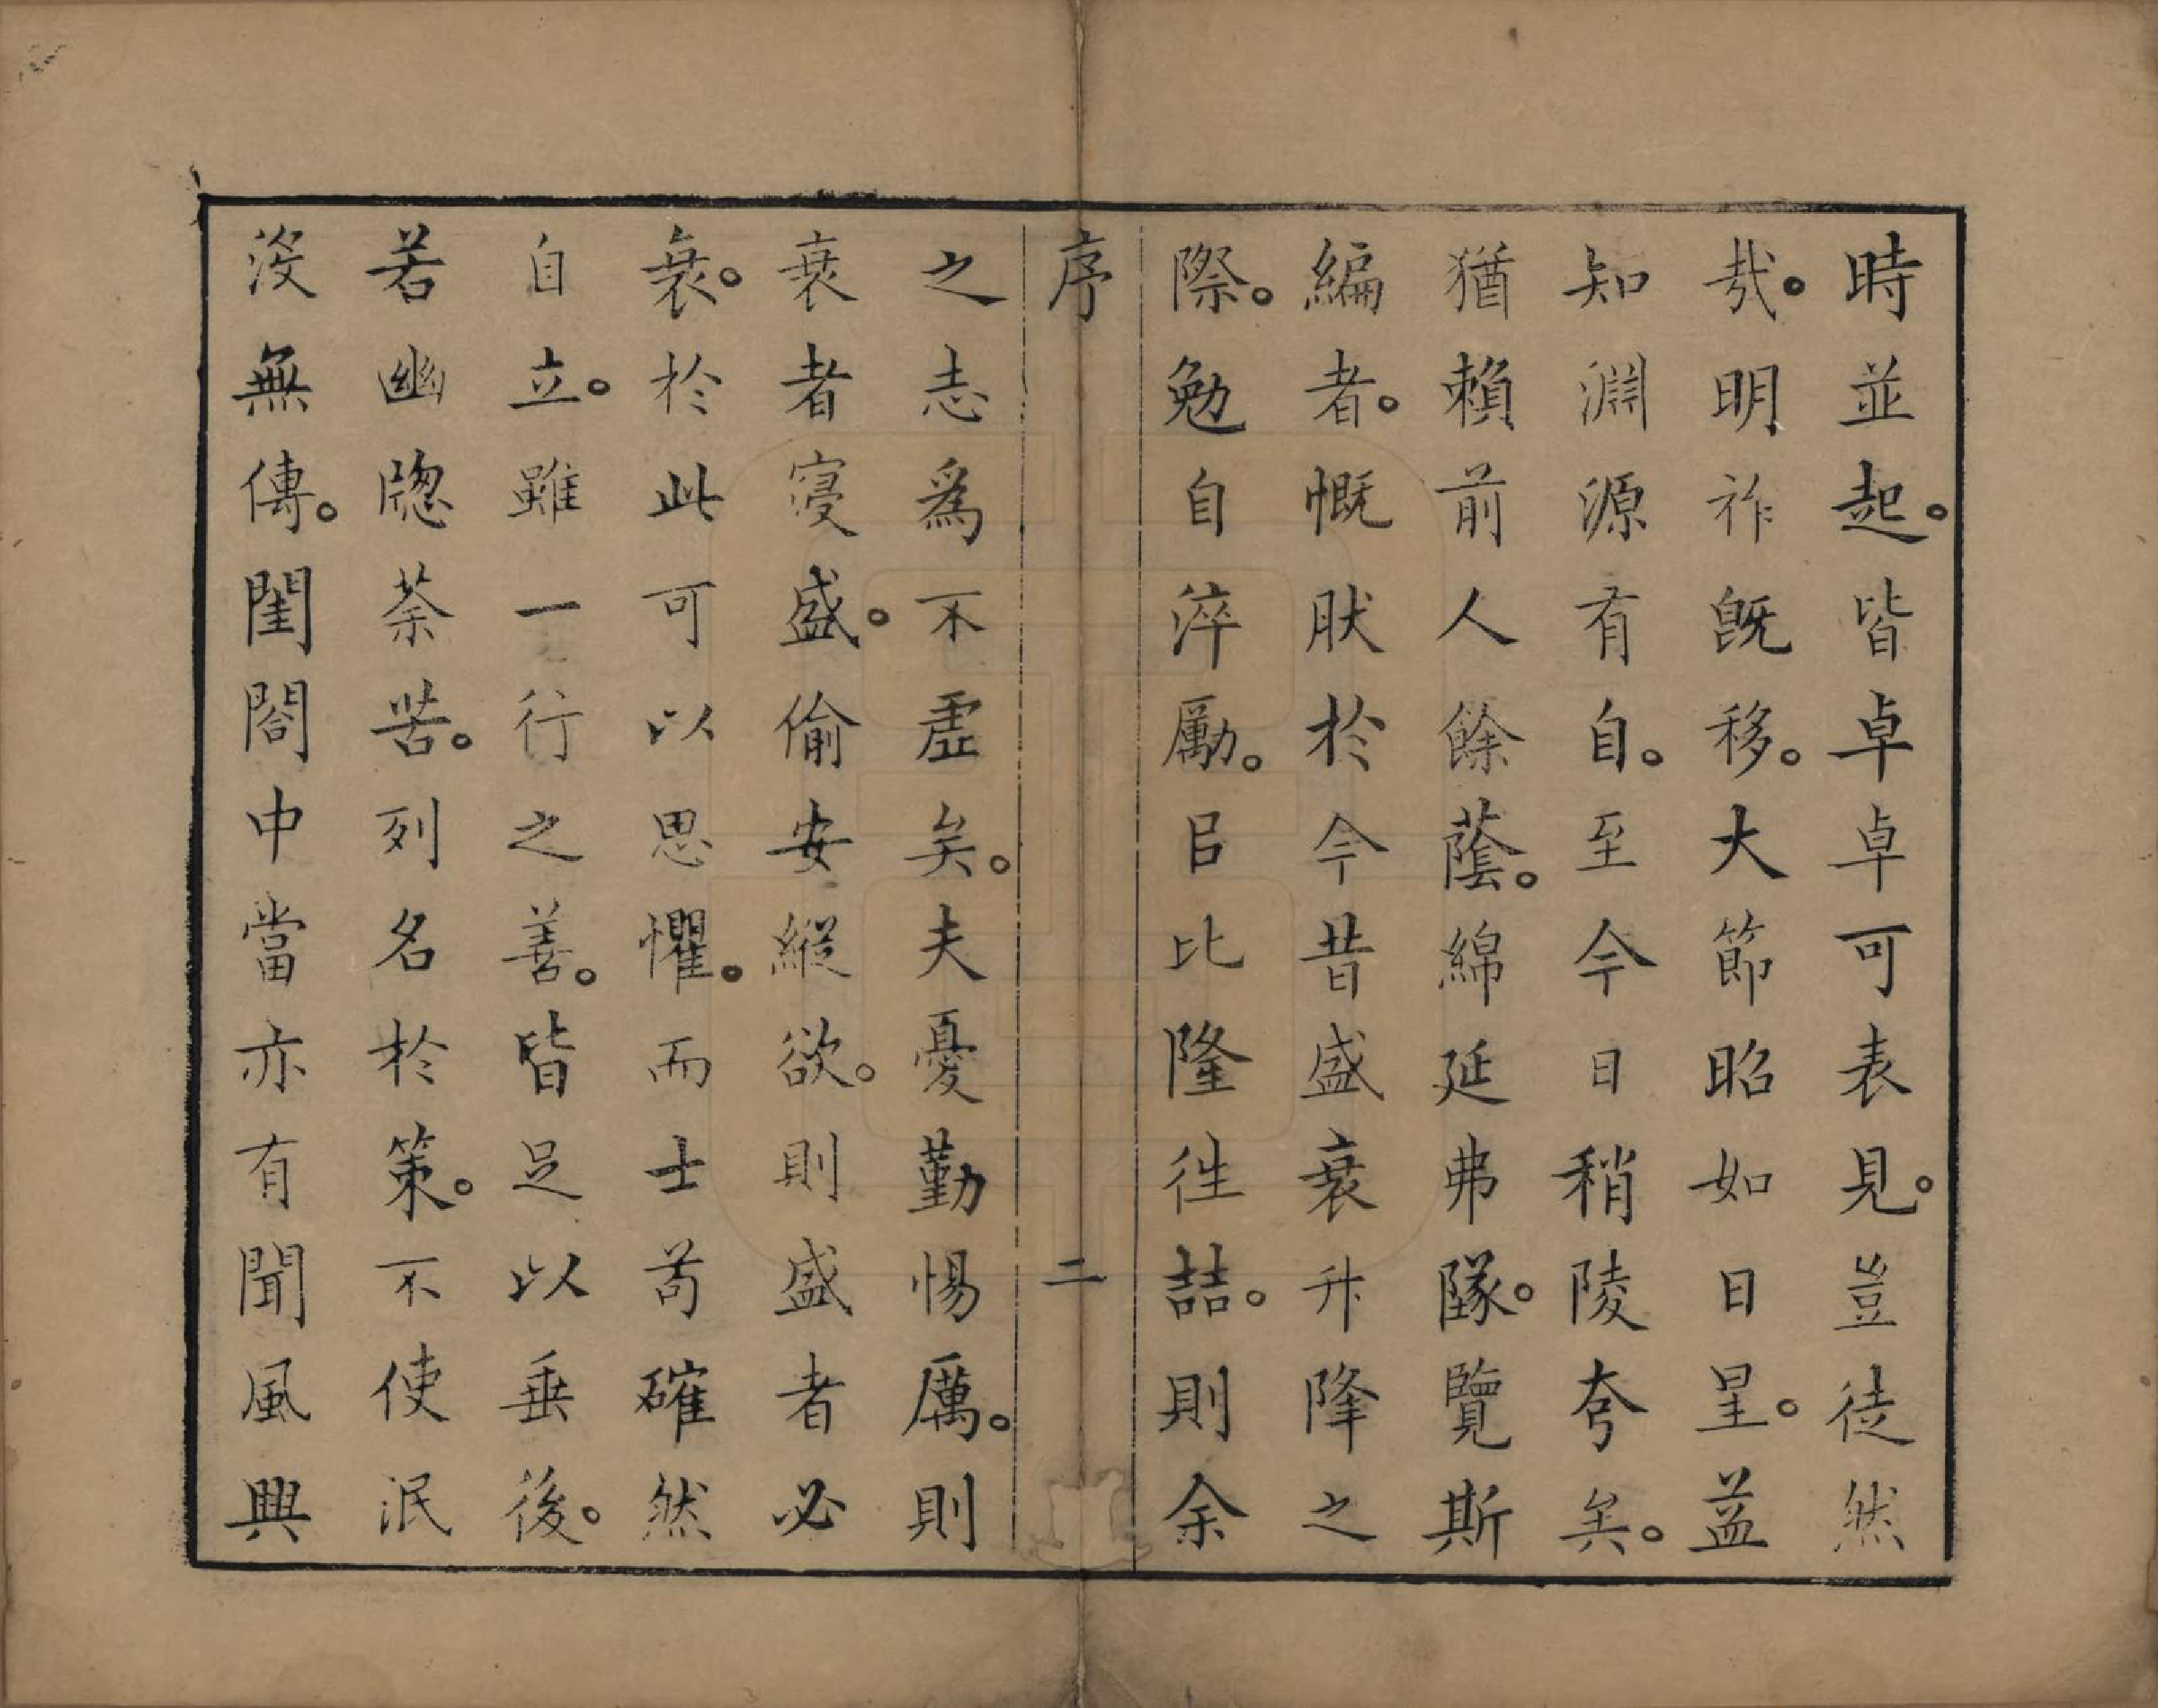 時並起。皆卓卓可表見。豈徒然
㢤。明祚既移。大節昭如日星。益
知淵源有自。至今日稍陵夸矣。
猶賴前人餘蔭。綿延弗隊。覽斯
編者。慨肰於今昔盛衰升降之
際。勉自淬勵。㠯比隆徃喆。則余
序 二
之志爲不虛矣。夫憂勤惕厲。則
衰者寖盛。偷安縱欲。則盛者必
衰。於此可以思懼。而士苟確然
自立。雖一行之善。皆足以垂後。
若幽牕荼苦。列名於策。不使泯
沒無傳。閨閤中當亦有聞風興